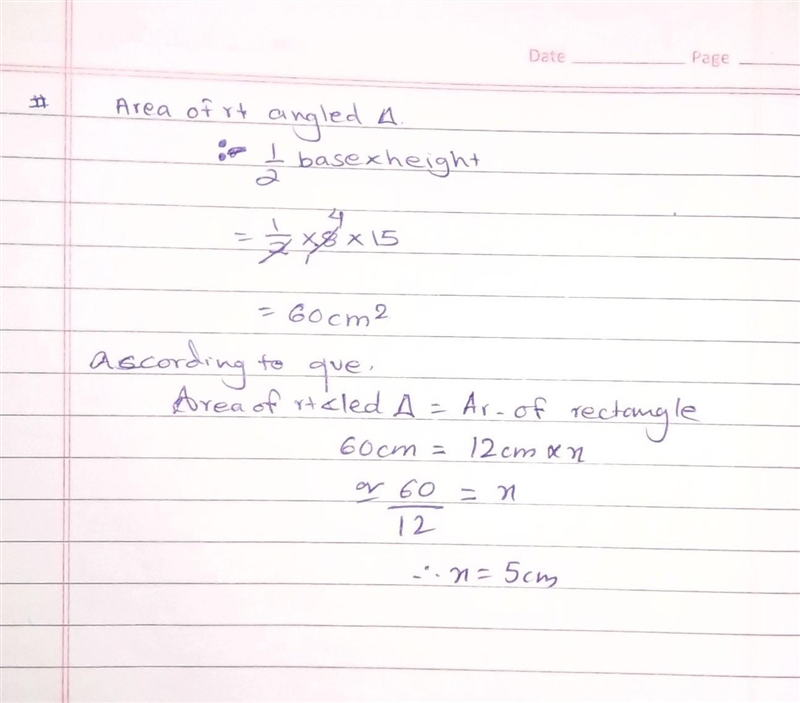 Date Page
# Area of rt angled Δ.
:- 1/2 base×height
= 1/2 × 8 4 × 15
1
= 60cm²
according to que.
Area of rt∠led Δ = Ar- of rectangle
60cm = 12cm × x
or 60/12 = x
∴ x = 5cm